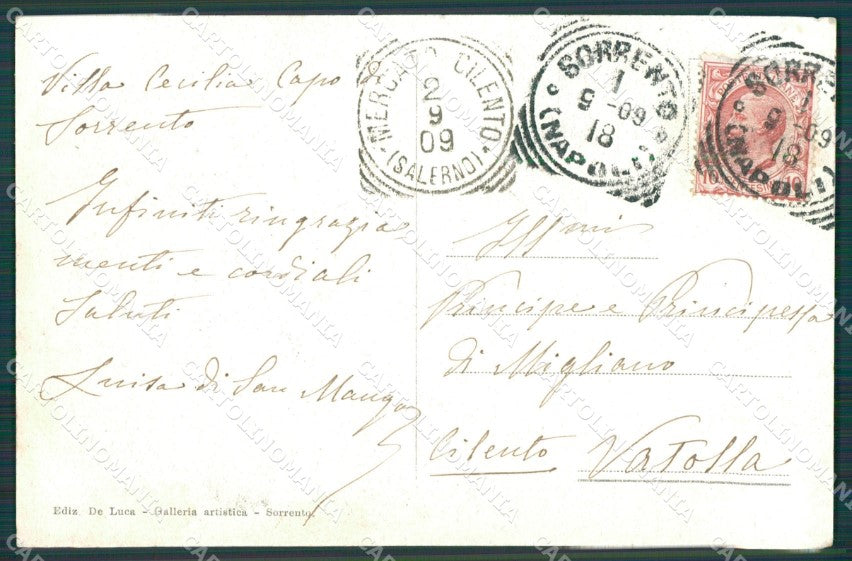 Villa Cecilia Capo di
Sorrento
Infiniti ringrazia
menti e cordiali
Saluti
Luisa di San Mango
Ediz. De Luca - Galleria artistica - Sorrento.
MERCATO CILENTO
2
9
09
(SALERNO)
SORRENTO
1
9-09
18
(NAPOLI)
SORRENTO
1
9-09
18
(NAPOLI)
Illmi
Principe e Principessa
di Migliano
Cilento Vatolla
CARTOLINOMANIA